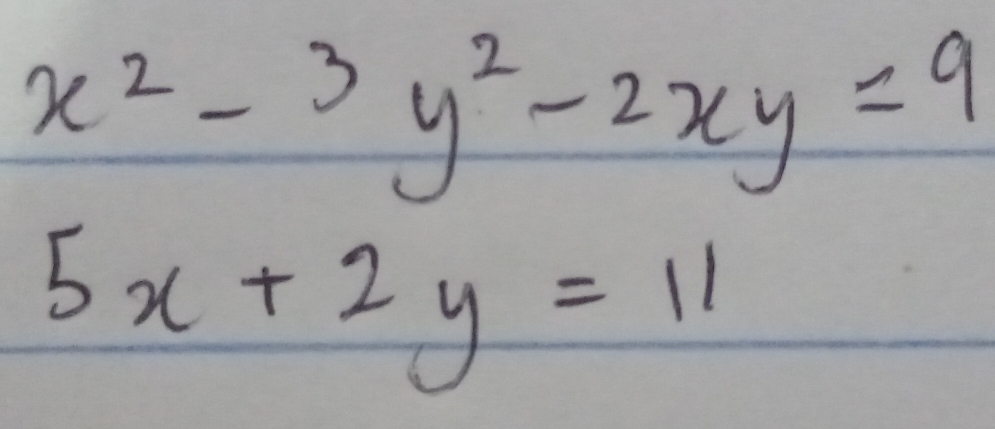 x² - 3y² - 2xy = 9
5x + 2y = 11